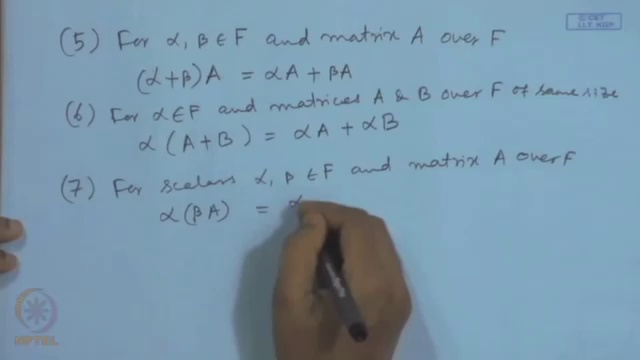 © CET
I.I.T. KGP
(5) For α, β ∈ F and matrix A over F
(α+β)A = αA + βA
(6) For α∈F and matrices A & B over F of same size
α(A+B) = αA + αB
(7) For scalars α, β ∈ F and matrix A over F
α(βA) = α
NPTEL